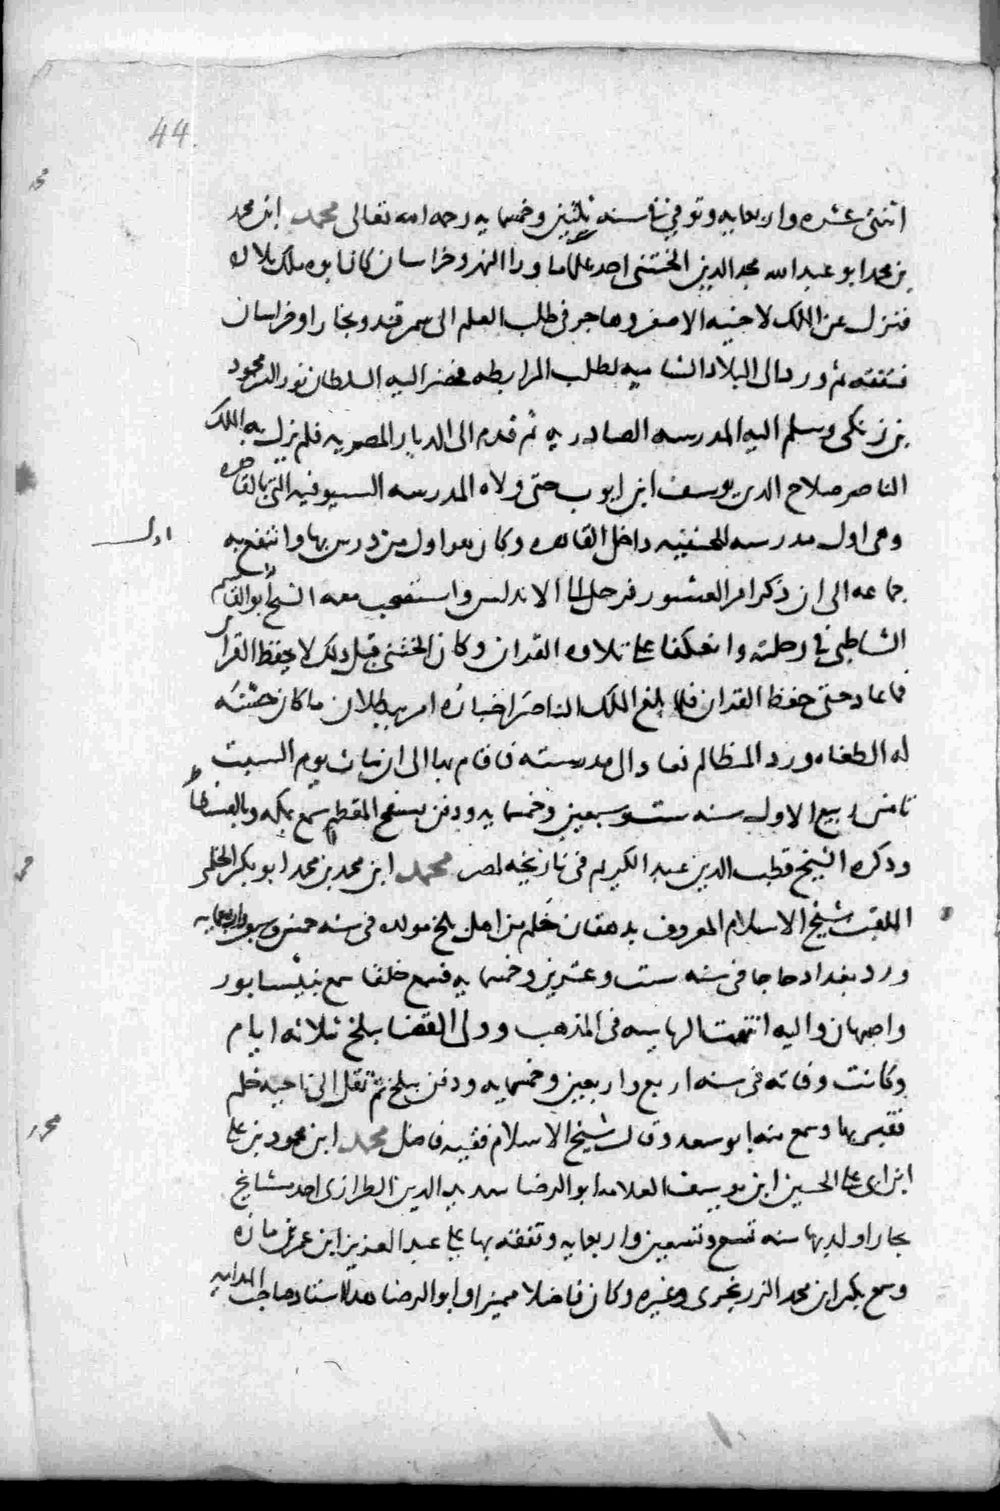 44
اثنتى عشره واربعمايه وتوفي في سنه ثلثين وخمسمايه رحمه الله تعالى محمد ابن محمد
بن محمد ابو عبد الله مجد الدين الختنى احد علما ما ورا النهر وخراسان كان ابوه ملك بلاده
فنزل عن الملك لاخيه الاصغر وهاجر فى طلب العلم الى سمرقند وبخارا وخراسان
فتفقه ثم ورد الى البلاد الشاميه لطلب المرابطه فحضر اليه السلطان نور الدين محمود
بن زنكى وسلم اليه المدرسه الصادريه ثم قدم الى الديار المصريه فلم يزل به الملك
الناصر صلاح الدين يوسف ابن ايوب حتى ولاه المدرسه السيوفيه التى بالقاهره
وهى اول مدرسه للحنفيه داخل القاهره وكان هو اول من درس بها وانتفع به
اول
جماعه الى ان ذكر امر العشور فرحل الى الاندلس واستصحب معه الشيخ ابو القاسم
الشاطبى فى رحلته وانعكفا على تلاوه القران وكان الختنى قبل ذلك لا يحفظ القران
فما عاد حتى حفظ القران فلما بلغ الملك الناصر اخباره امر بابطلان ما كان حسّنه
له الطغاه ورد المظالم فعاد الى مدرسته فاقام بها الى ان مات يوم السبت
ثامن ربيع الاول سنه ست وسبعين وخمسمايه ودفن بسفح المقطم سمع بمكه وبالفسطاط
وذكره الشيخ قطب الدين عبد الكريم فى تاريخه لمصر محمد ابن محمد بن محمد ابو بكر الخلمى
الملقب شيخ الاسلام المعروف بدهقان خلم من اهل بلخ مولده فى سنه خمس وسبعين واربعمايه
ورد بغداد حاجا فى سنه ست وعشرين وخمسمايه فسمع خلقا سمع بنيسابور
واصبهان واليه انتهت الرياسه فى المذهب وولى القضا ببلخ ثلاثه ايام
وكانت وفاته فى سنه اربع واربعين وخمسمايه ودفن ببلخ ثم نقل الى ناحيه خلم
فقبر بها وسمع منه ابو سعد وقال شيخ الاسلام فقيه فاضل محمد ابن محمود بن على
ابن ابى على الحسين ابن يوسف العلامه ابو الرضا سديد الدين الطرازى احد مشايخ
بخارا ولد بها سنه تسع وتسعين واربعمايه وتفقه بها على عبد العزيز ابن عمر بن مازه
وسمع بكر ابن محمد الزرنجرى وغيره وكان فاضلا مميزا وابو الرضا هذا استاد صاحب الهدايه